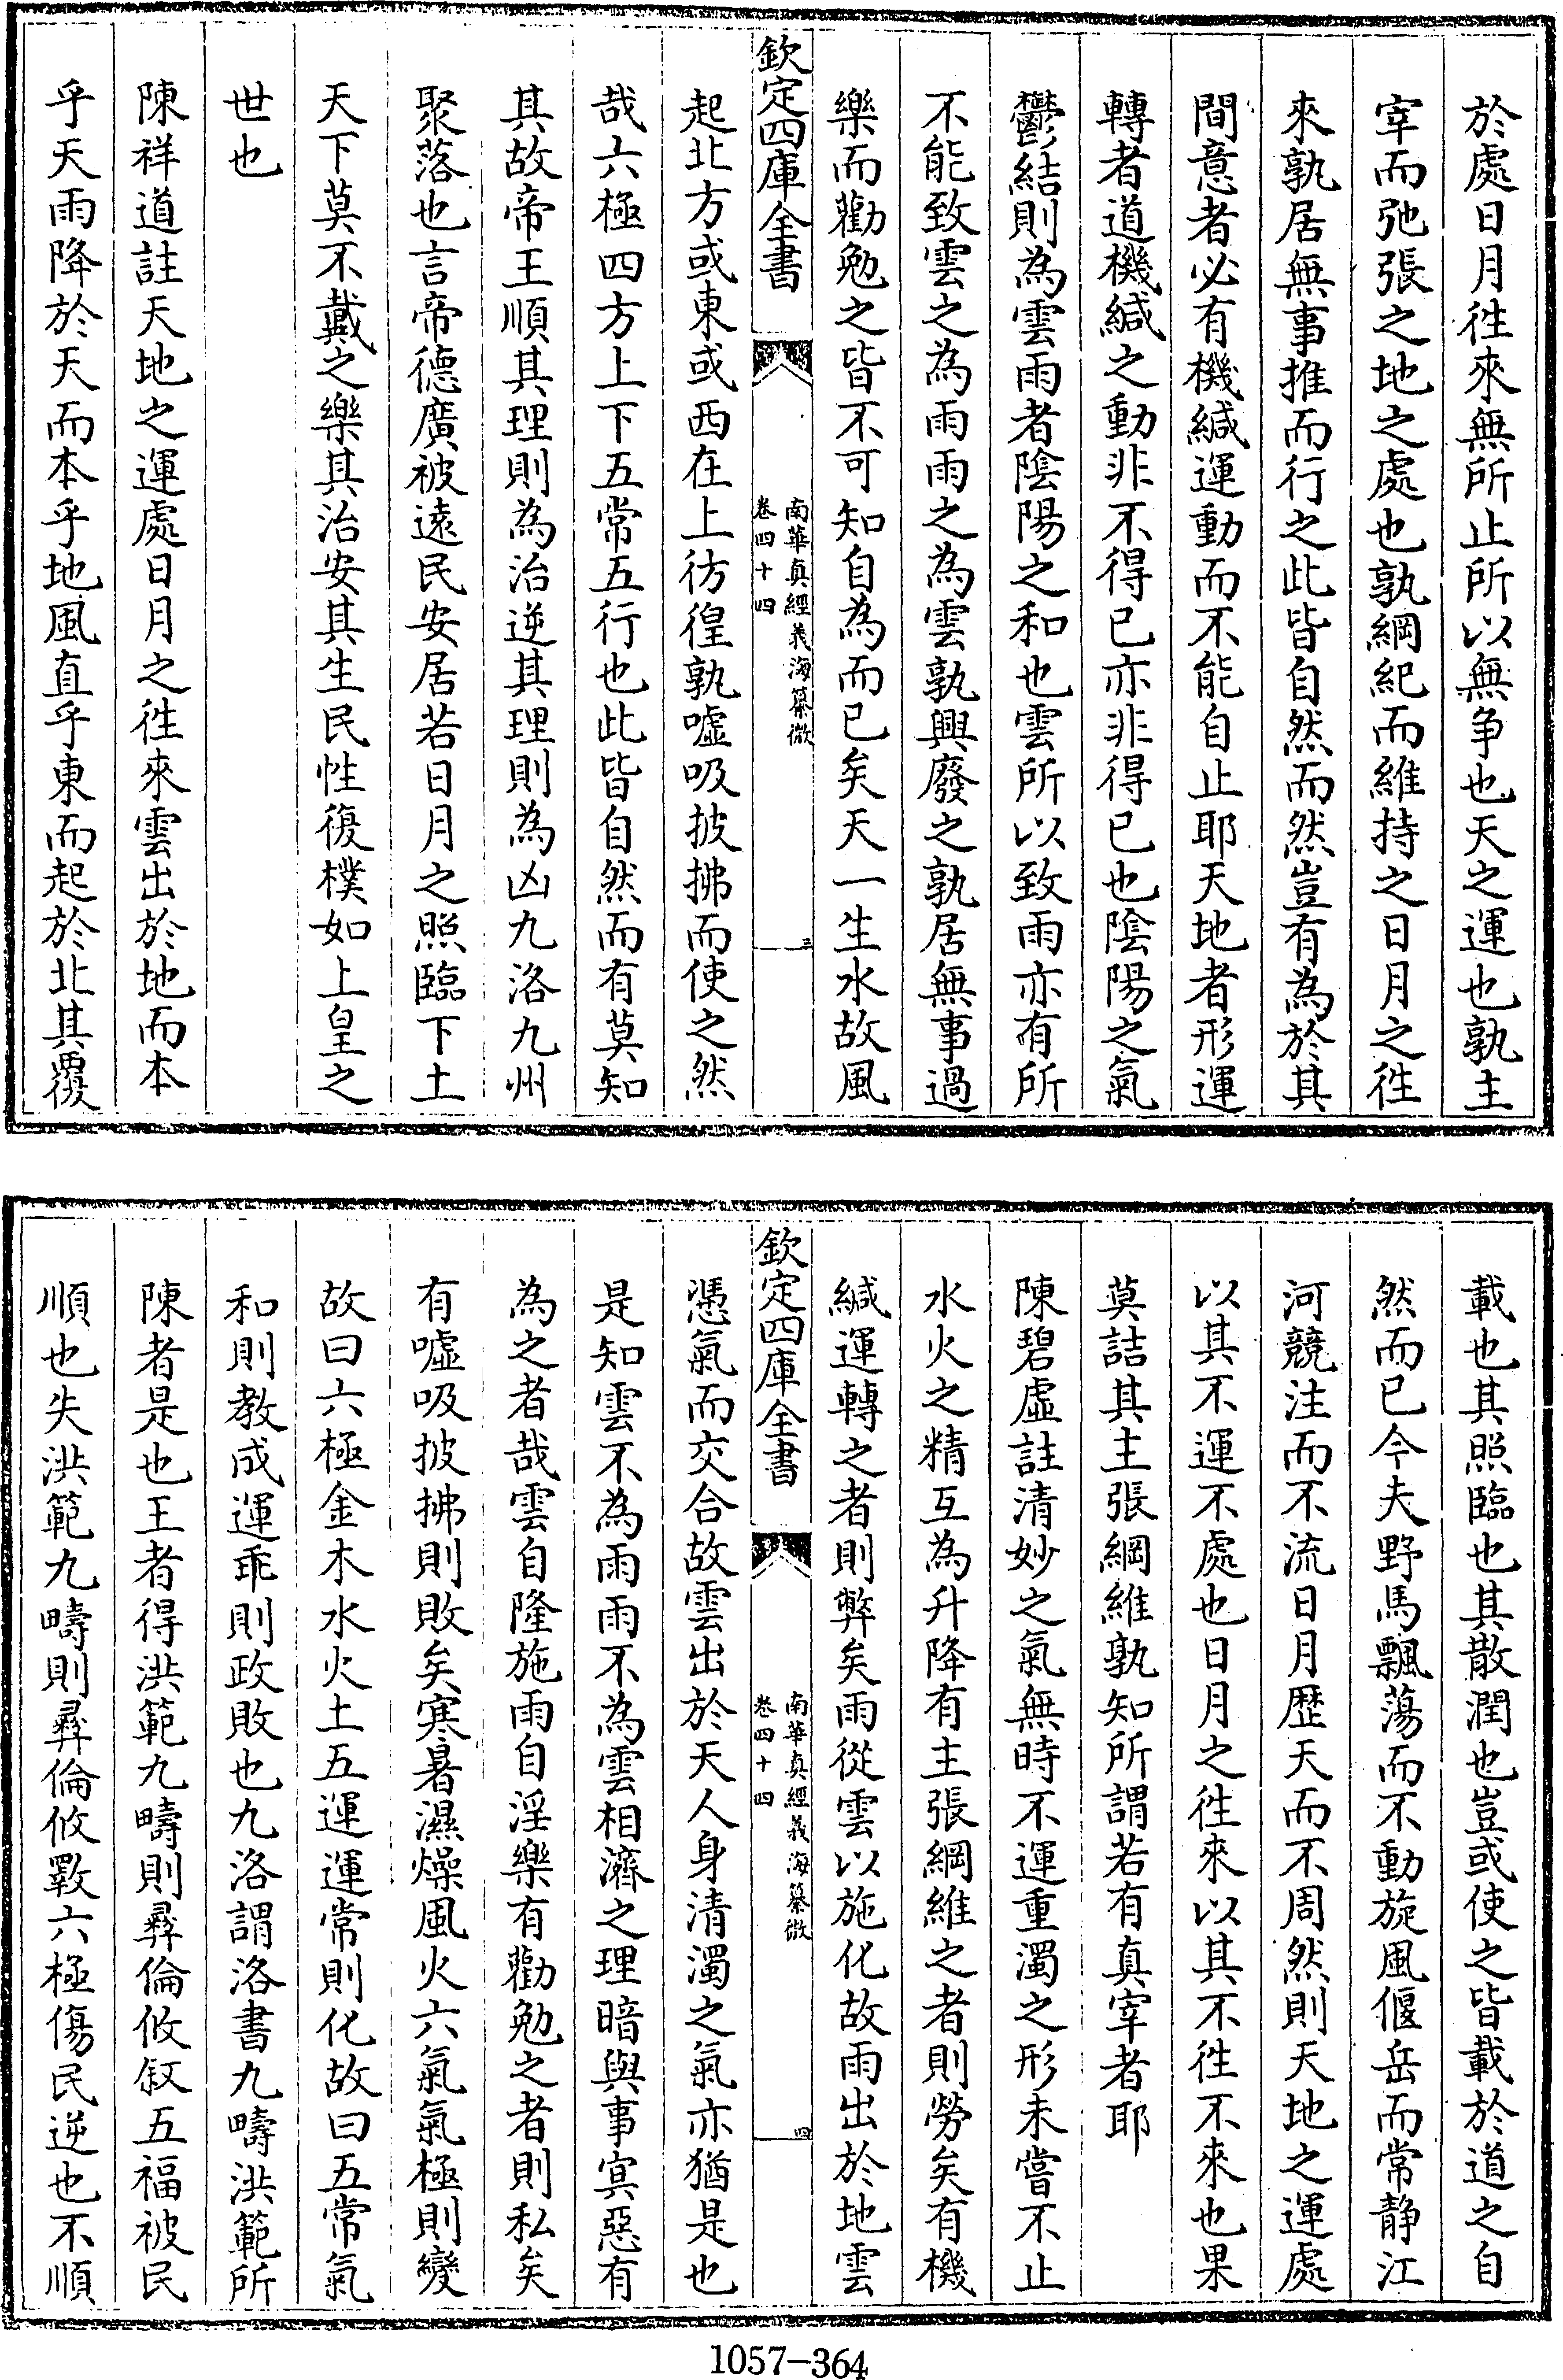 於處日月徃來無所止所以無争也天之運也孰主
宰而弛張之地之處也孰綱紀而維持之日月之徃
來孰居無事推而行之此皆自然而然豈有為於其
間意者必有機緘運動而不能自止耶天地者形運
轉者道機緘之動非不得已亦非得已也陰陽之氣
鬱結則為雲雨者陰陽之和也雲所以致雨亦有所
不能致雲之為雨雨之為雲孰興廢之孰居無事過
樂而勸勉之皆不可知自為而已矣天一生水故風
欽定四庫全書
南華真經義海纂微
卷四十四
三
起北方或東或西在上彷徨孰噓吸披拂而使之然
哉六極四方上下五常五行也此皆自然而有莫知
其故帝王順其理則為治逆其理則為凶九洛九州
聚落也言帝德廣被遠民安居若日月之照臨下土
天下莫不戴之樂其治安其生民性復樸如上皇之
世也
陳祥道註天地之運處日月之徃來雲出於地而本
乎天雨降於天而本乎地風直乎東而起於北其覆
載也其照臨也其散潤也豈或使之皆載於道之自
然而已今夫野馬飄蕩而不動旋風偃岳而常静江
河競注而不流日月歴天而不周然則天地之運處
以其不運不處也日月之徃來以其不徃不來也果
莫詰其主張綱維孰知所謂若有真宰者耶
陳碧虛註清妙之氣無時不運重濁之形未嘗不止
水火之精互為升降有主張綱維之者則勞矣有機
緘運轉之者則弊矣雨從雲以施化故雨出於地雲
欽定四庫全書
南華真經義海纂微
卷四十四
四
憑氣而交合故雲出於天人身清濁之氣亦猶是也
是知雲不為雨雨不為雲相濟之理暗與事㝠惡有
為之者哉雲自隆施雨自淫樂有勸勉之者則私矣
有噓吸披拂則敗矣寒暑濕燥風火六氣氣極則變
故曰六極金木水火土五運運常則化故曰五常氣
和則教成運乖則政敗也九洛謂洛書九疇洪範所
陳者是也王者得洪範九疇則彞倫攸叙五福被民
順也失洪範九疇則彞倫攸斁六極傷民逆也不順
1057-364